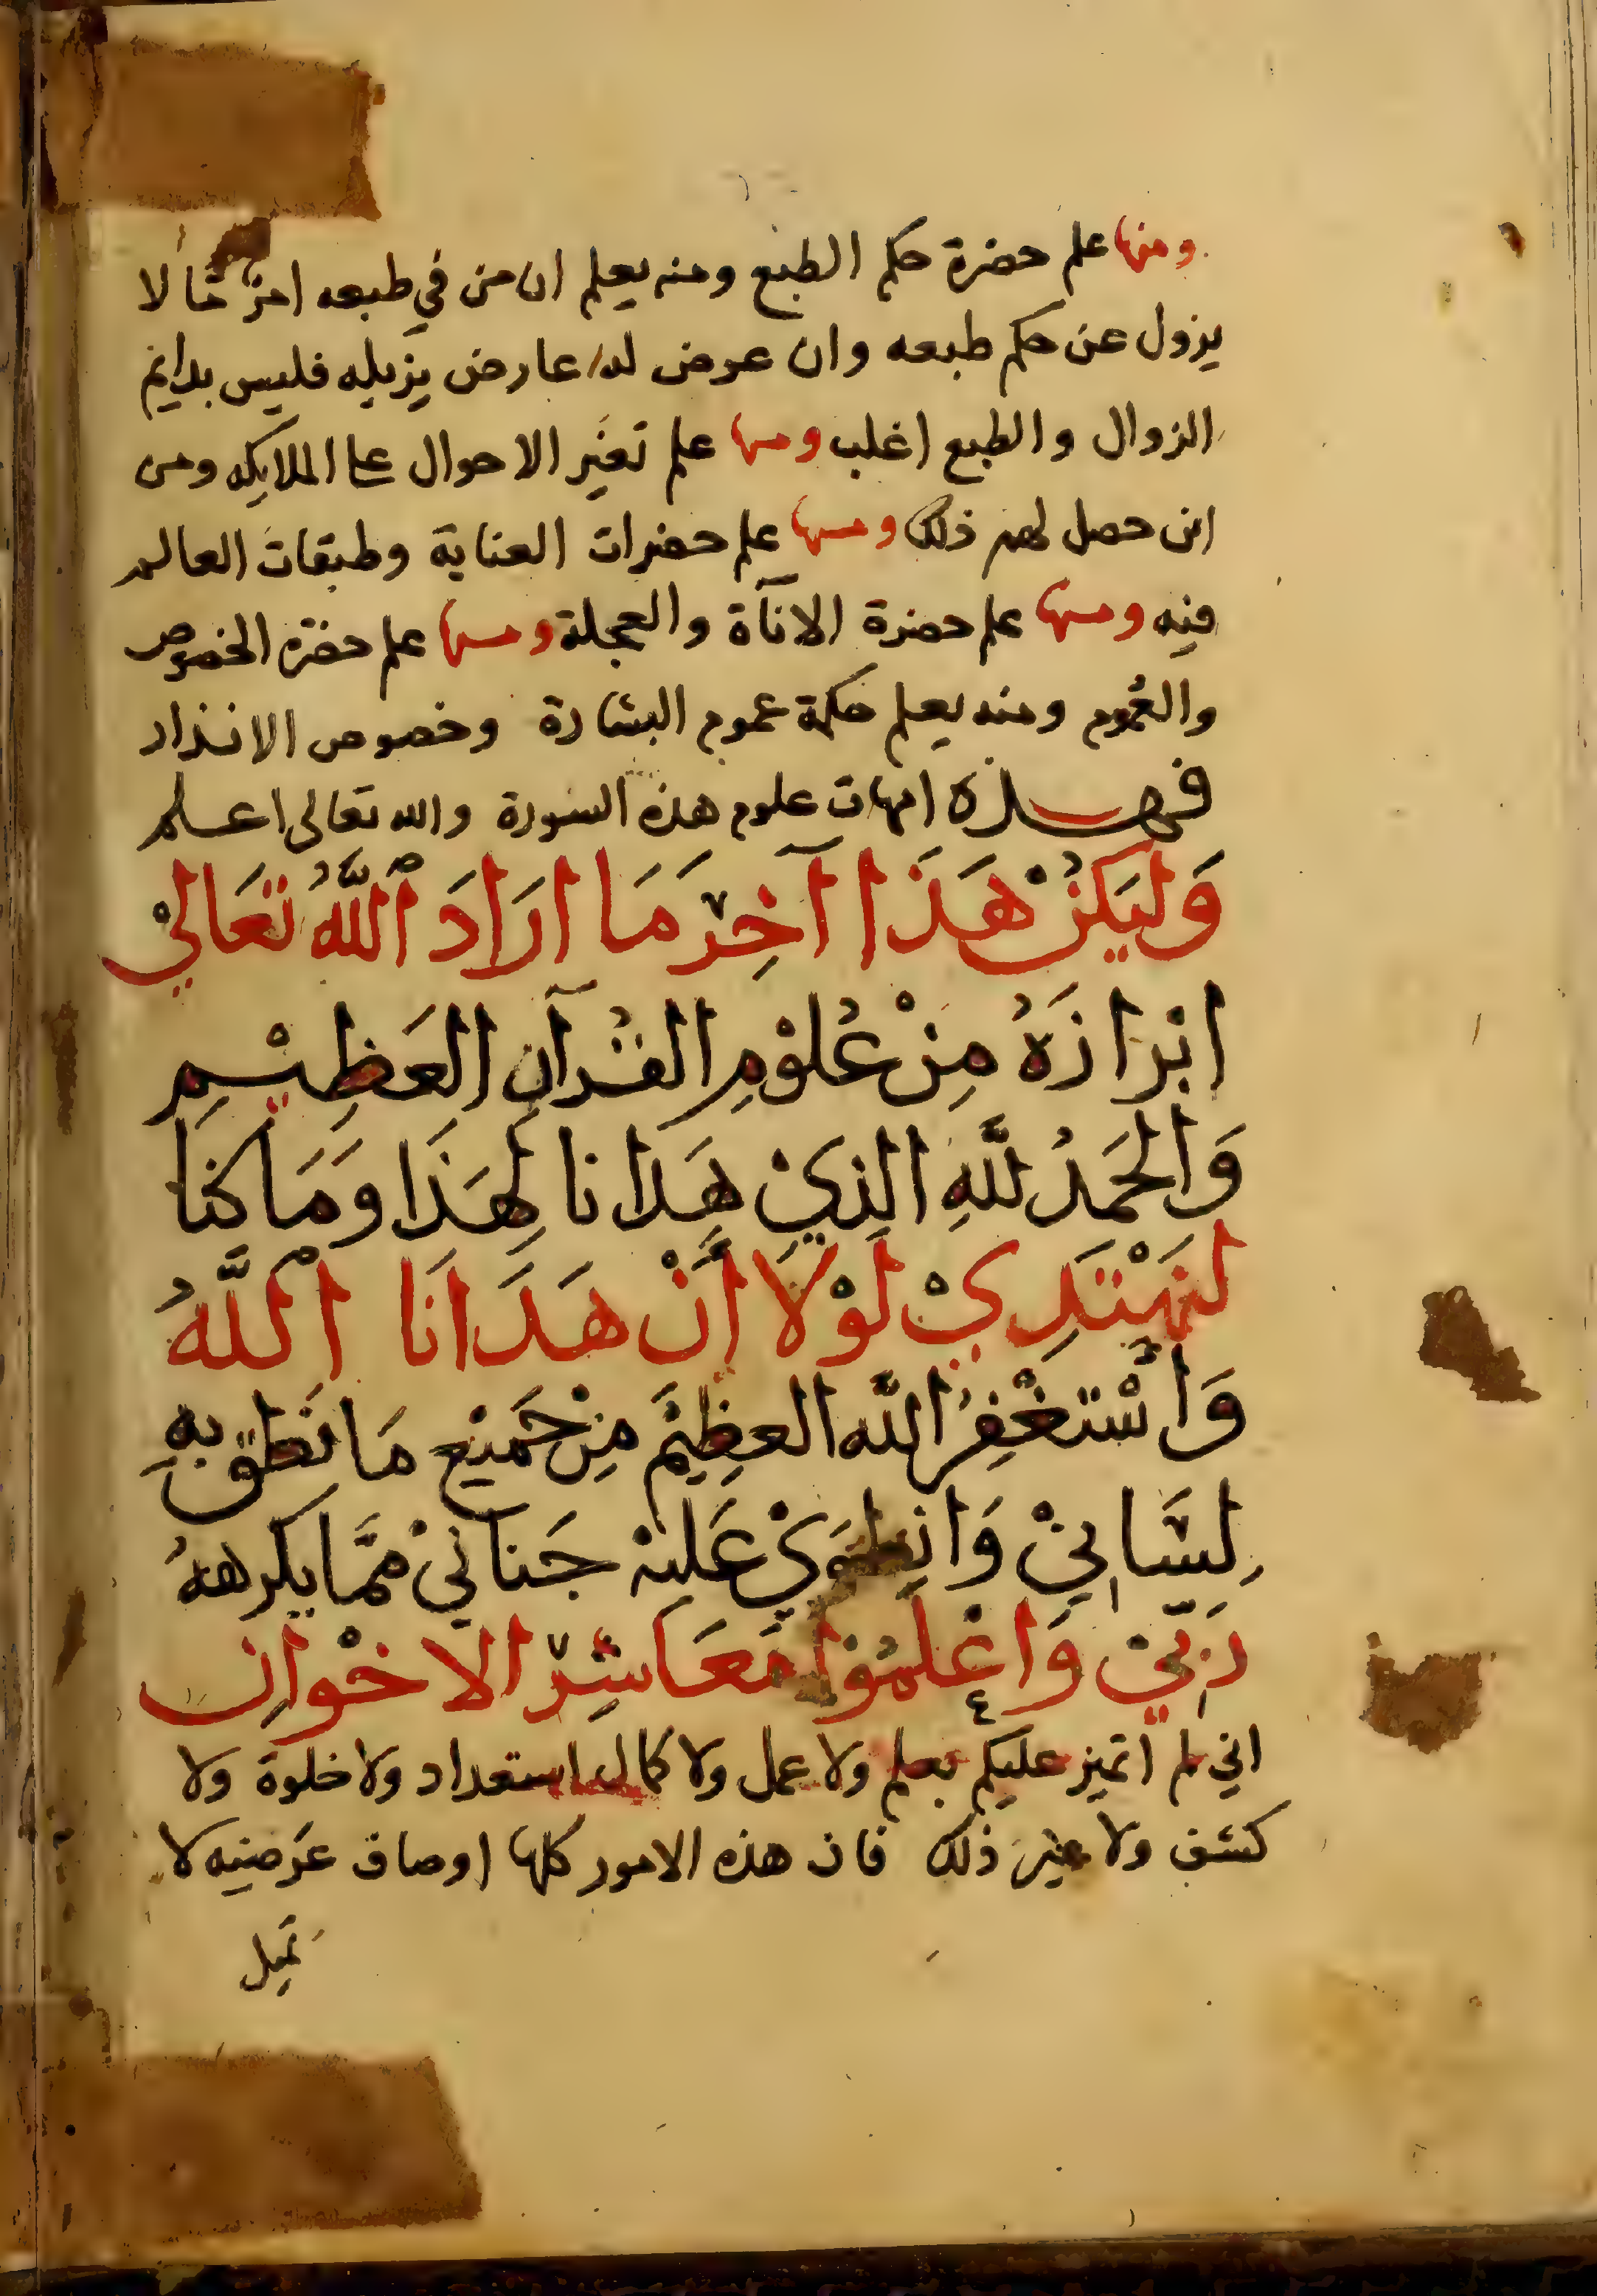 ومنها علم حضرة حكم الطبع ومنه يعلم ان من في طبعه امرٌ مّا لا
يزول عن حكم طبعه وان عرض له عارض يزيله فليس بدايم
الزوال والطبع اغلب ومنها علم تغير الاحوال على الملايكه ومن
اين حصل لهم ذلك ومنها علم حضرات العناية وطبقات العالم
فيه ومنها علم حضرة الاناۤة والعجلة ومنها علم حضرة الخصوص
والعُموم ومنه يعلم حكمة عموم البشارة وخصوص الانذار
فهذه امهات علوم هذه السورة والله تعالى اعلم
وَليَكُنْ هَذَا آخِرَ مَا ارَادَ اللَّهُ تعَالىْ
ابرازَهُ مِنْ عُلوْمِ القُرآنِ العَظِيْمِ
وَالحَمدُ للَّهِ الذِيْ هَدَانا لِهَذَا وَمَا كنا
لنَهْتَدِيْ لَوْلَا أَنْ هَدَانَا اللَّهُ
وَاسْتَغْفِرُ اللَّه العظِيْمَ مِنْ جَمِيْعِ مَا نَطَق بهِ
لِسَّانِيْ وَانِطَوَيْ عَليْهِ جَنانِيْ مِمَّا يكرههُ
رَبِّيْ وَاعْلَمُوْا مَعَاشِرَ الاخْوانِ
اني لم اتميز عليكم بعلم ولا عمل ولا كمال استعداد ولا خلوة ولا
كشف ولا غير ذلك فان هذه الامور كلها اوصاف عَرَضيه لا